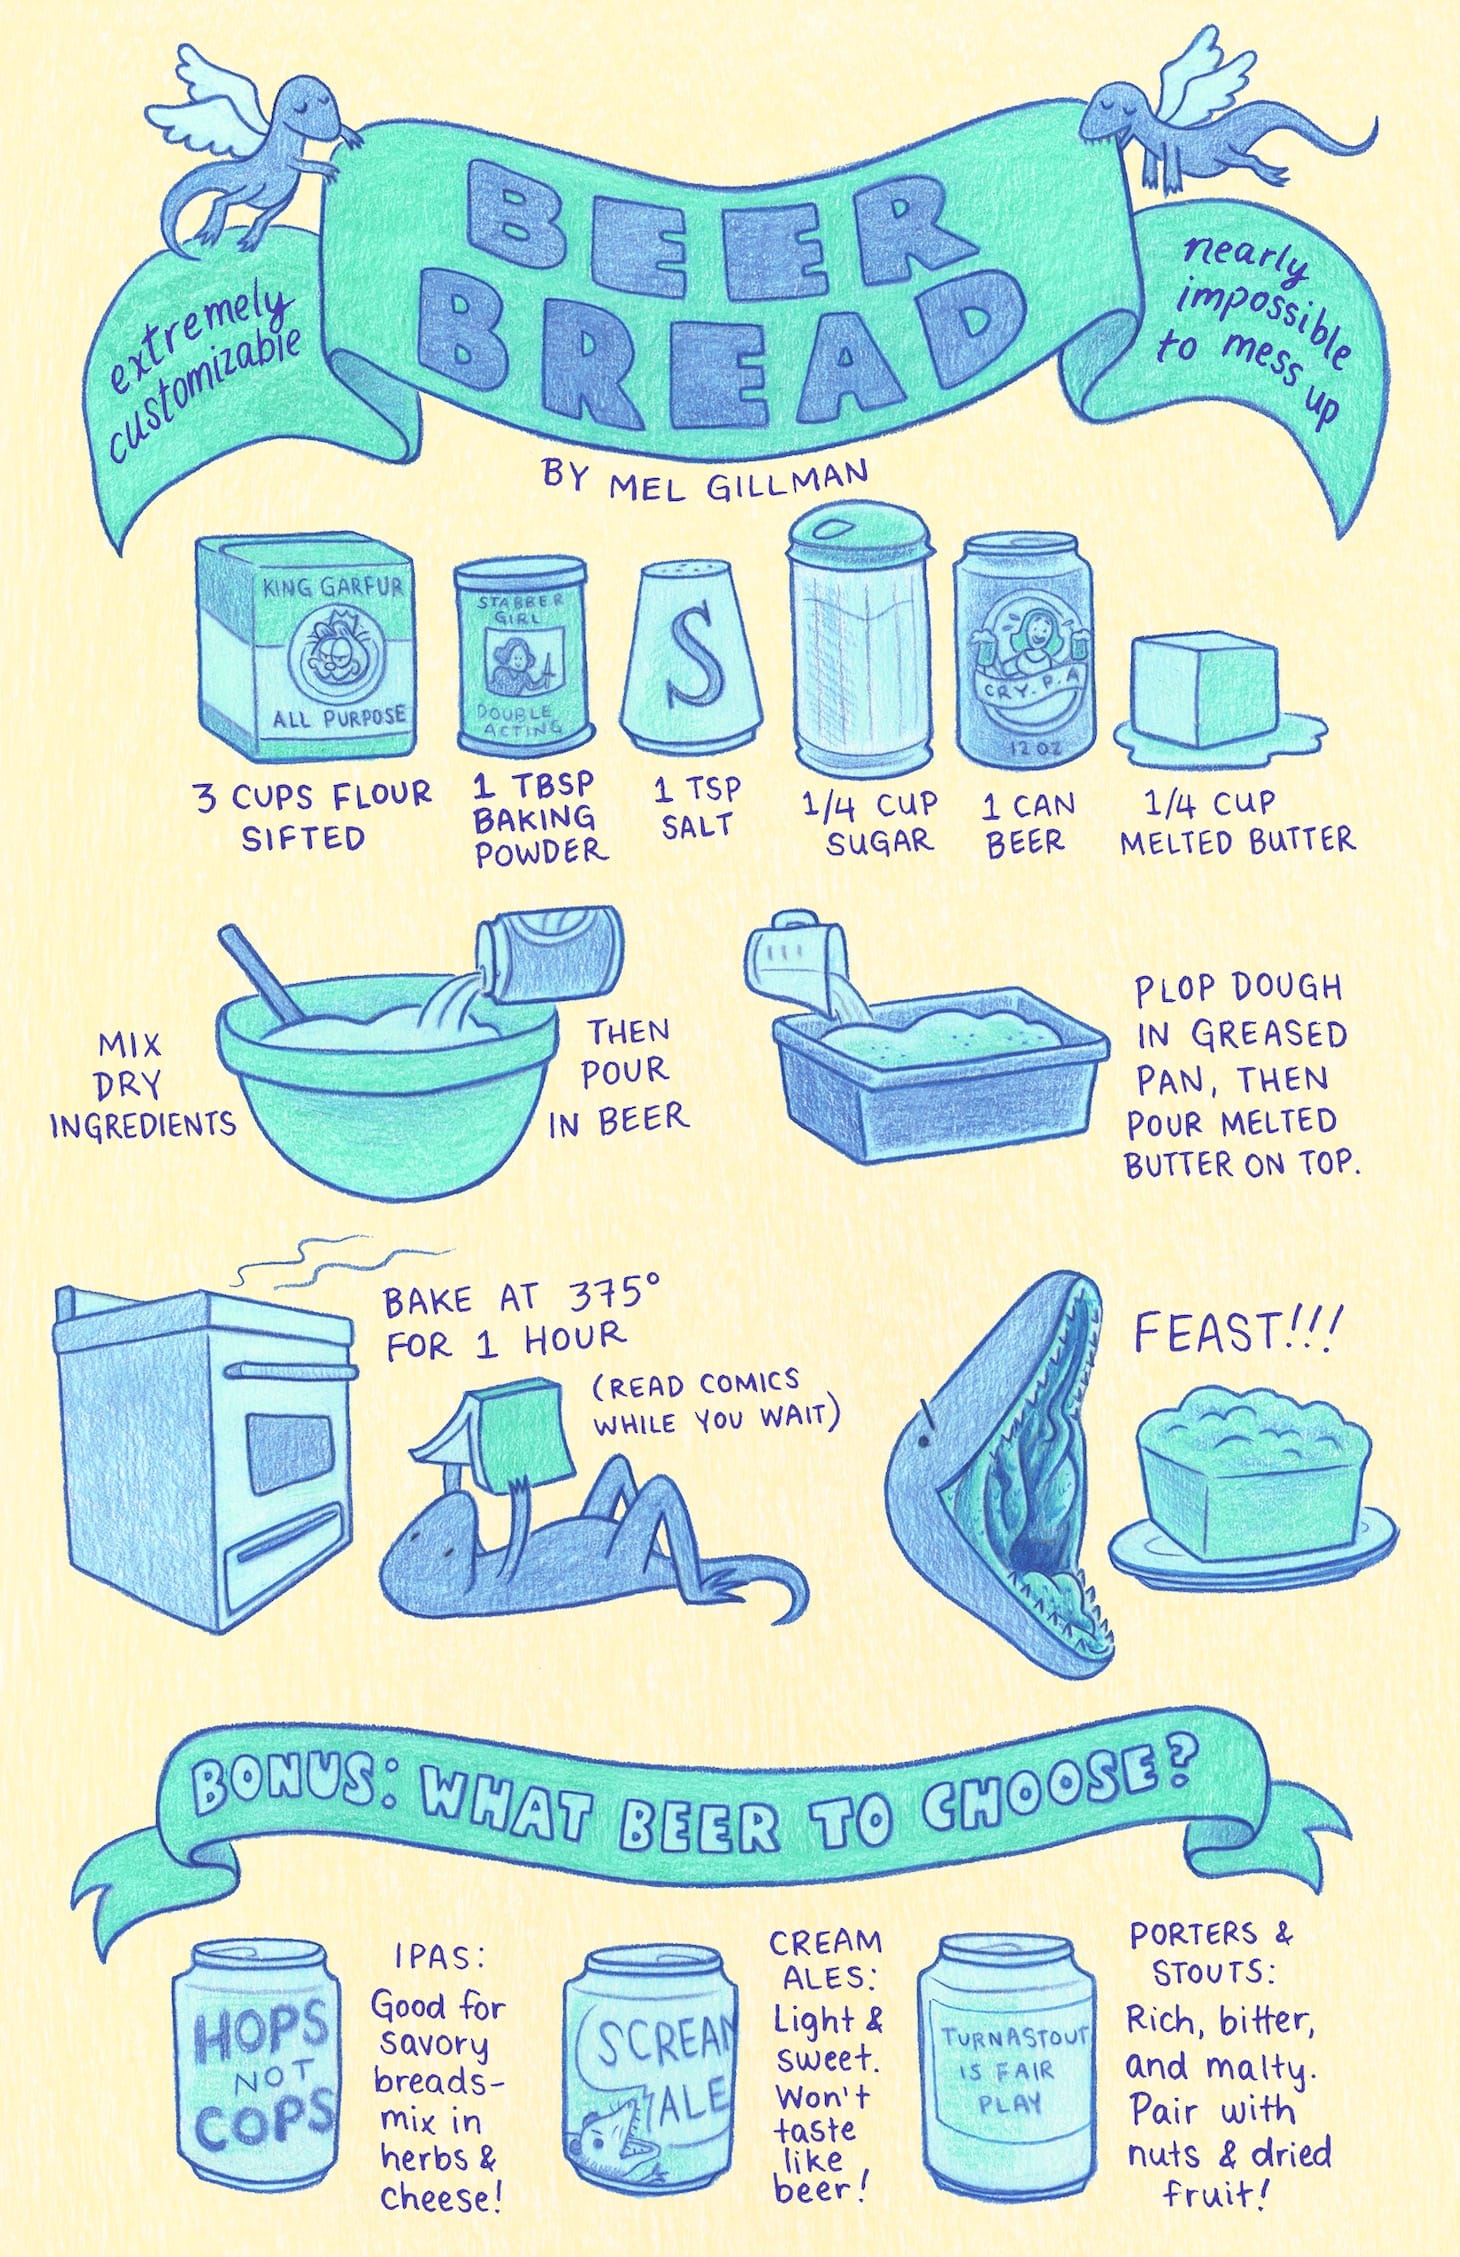 BEER
BREAD
extremely
customizable
nearly
impossible
to mess up
BY MEL GILLMAN
KING GARFUR
ALL PURPOSE
3 CUPS FLOUR
SIFTED
STABBER
GIRL
DOUBLE
ACTING
1 TBSP
BAKING
POWDER
S
1 TSP
SALT
1/4 CUP
SUGAR
CRY.P.A
12 OZ
1 CAN
BEER
1/4 CUP
MELTED BUTTER
MIX
DRY
INGREDIENTS
THEN
POUR
IN BEER
PLOP DOUGH
IN GREASED
PAN, THEN
POUR MELTED
BUTTER ON TOP.
BAKE AT 375°
FOR 1 HOUR
(READ COMICS
WHILE YOU WAIT)
FEAST!!!
BONUS: WHAT BEER TO CHOOSE?
HOPS
NOT
COPS
IPAS:
Good for
savory
breads-
mix in
herbs &
cheese!
SCREAM
ALE
CREAM
ALES:
Light &
sweet.
Won't
taste
like
beer!
TURNASTOUT
IS FAIR
PLAY
PORTERS &
STOUTS:
Rich, bitter,
and malty.
Pair with
nuts & dried
fruit!